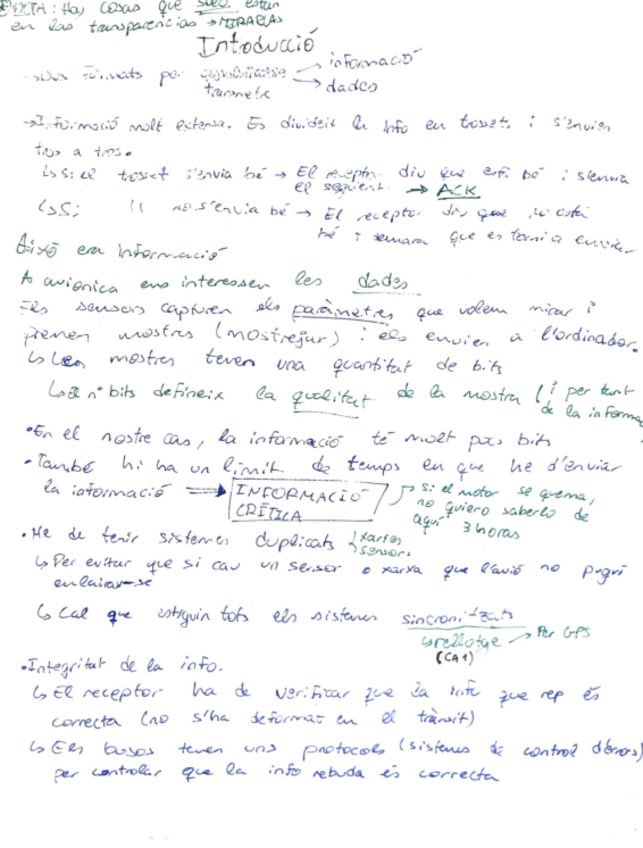 NOTA: Hay cosas que solo están
en las transparencias → MIRARLAS
Intoducció
→ Dos formats per transmetre → informació
→ dades
→ Informació molt extensa. Es divideix la info en trossets i s'envien
tros a tros.
↳ Si el trosset s'envia bé → El receptor diu que està bé i s'envia
el següent. → ACK
↳ Si " no s'envia bé → El receptor diu que no està
bé i demana que es torni a enviar
Això era informació
A avionica ens interessen les dades
Els sensors capturen els paràmetres que volem mirar i
prenen mostres (mostrejar) i els envien a l'ordinador.
↳ Les mostres tenen una quantitat de bits
↳ El nº bits defineix la qualitat de la mostra (i per tant
de la informa
• En el nostre cas, la informació té molt pocs bits
• També hi ha un límit de temps en que he d'enviar
la informació ⟹ INFORMACIÓ
CRÍTICA
→ si el motor se quema,
no quiero saberlo de
aquí 3 horas
• He de tenir sistemes duplicats { xarxes
sensors
↳ Per evitar que si cau un sensor o xarxa que l'avió no pugui
enlairar-se
↳ Cal que estiguin tots els sistemes sincronitzats
↳ rellotge → Per GPS
(CA1)
• Integritat de la info.
↳ El receptor ha de verificar que la info que rep és
correcta (no s'ha deformat en el trànsit)
↳ Els busos tenen uns protocols (sistemes de control d'errors)
per controlar que la info rebuda és correcta